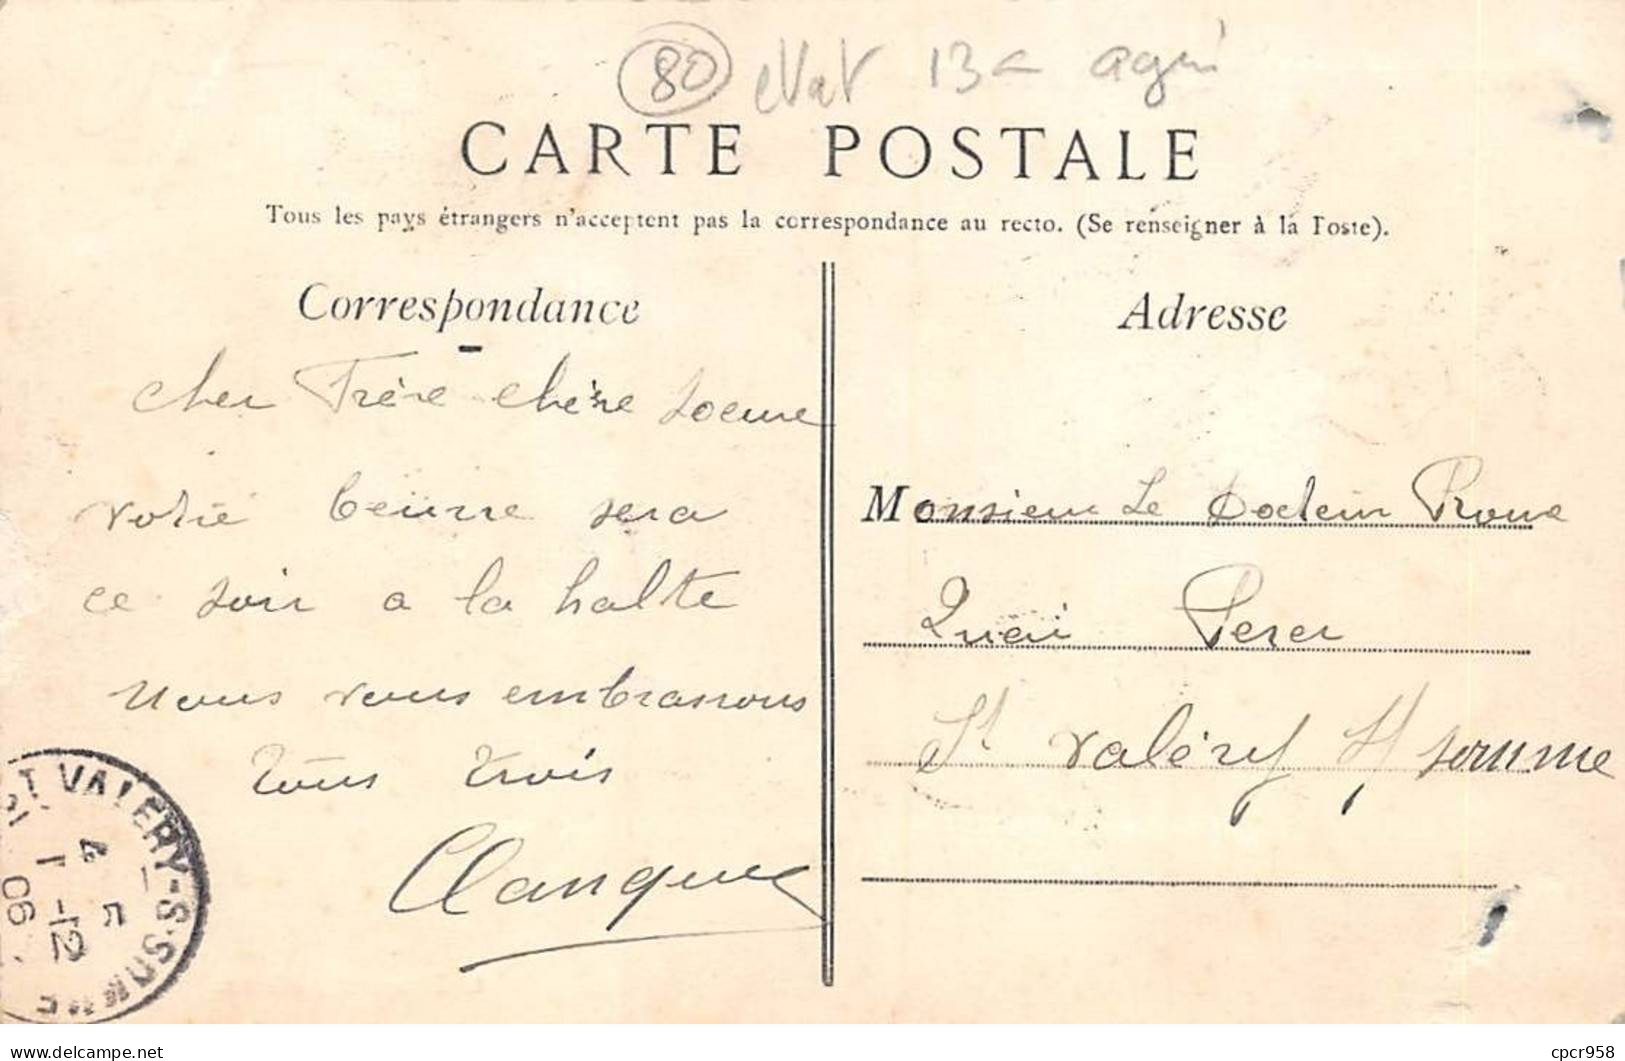 80 13 agri
CARTE POSTALE
Tous les pays étrangers n'acceptent pas la correspondance au recto. (Se renseigner à la Poste).
Correspondance
cher Frère chère Soeure
votre beurre sera
ce soir a la halte
Nous vous embrassons
Tous trois
Adresse
Monsieur Le Docteur
Quai Perer
St Valéry S/ somme
ST VALERY-S-SOMME
4 12
06
cpcr958